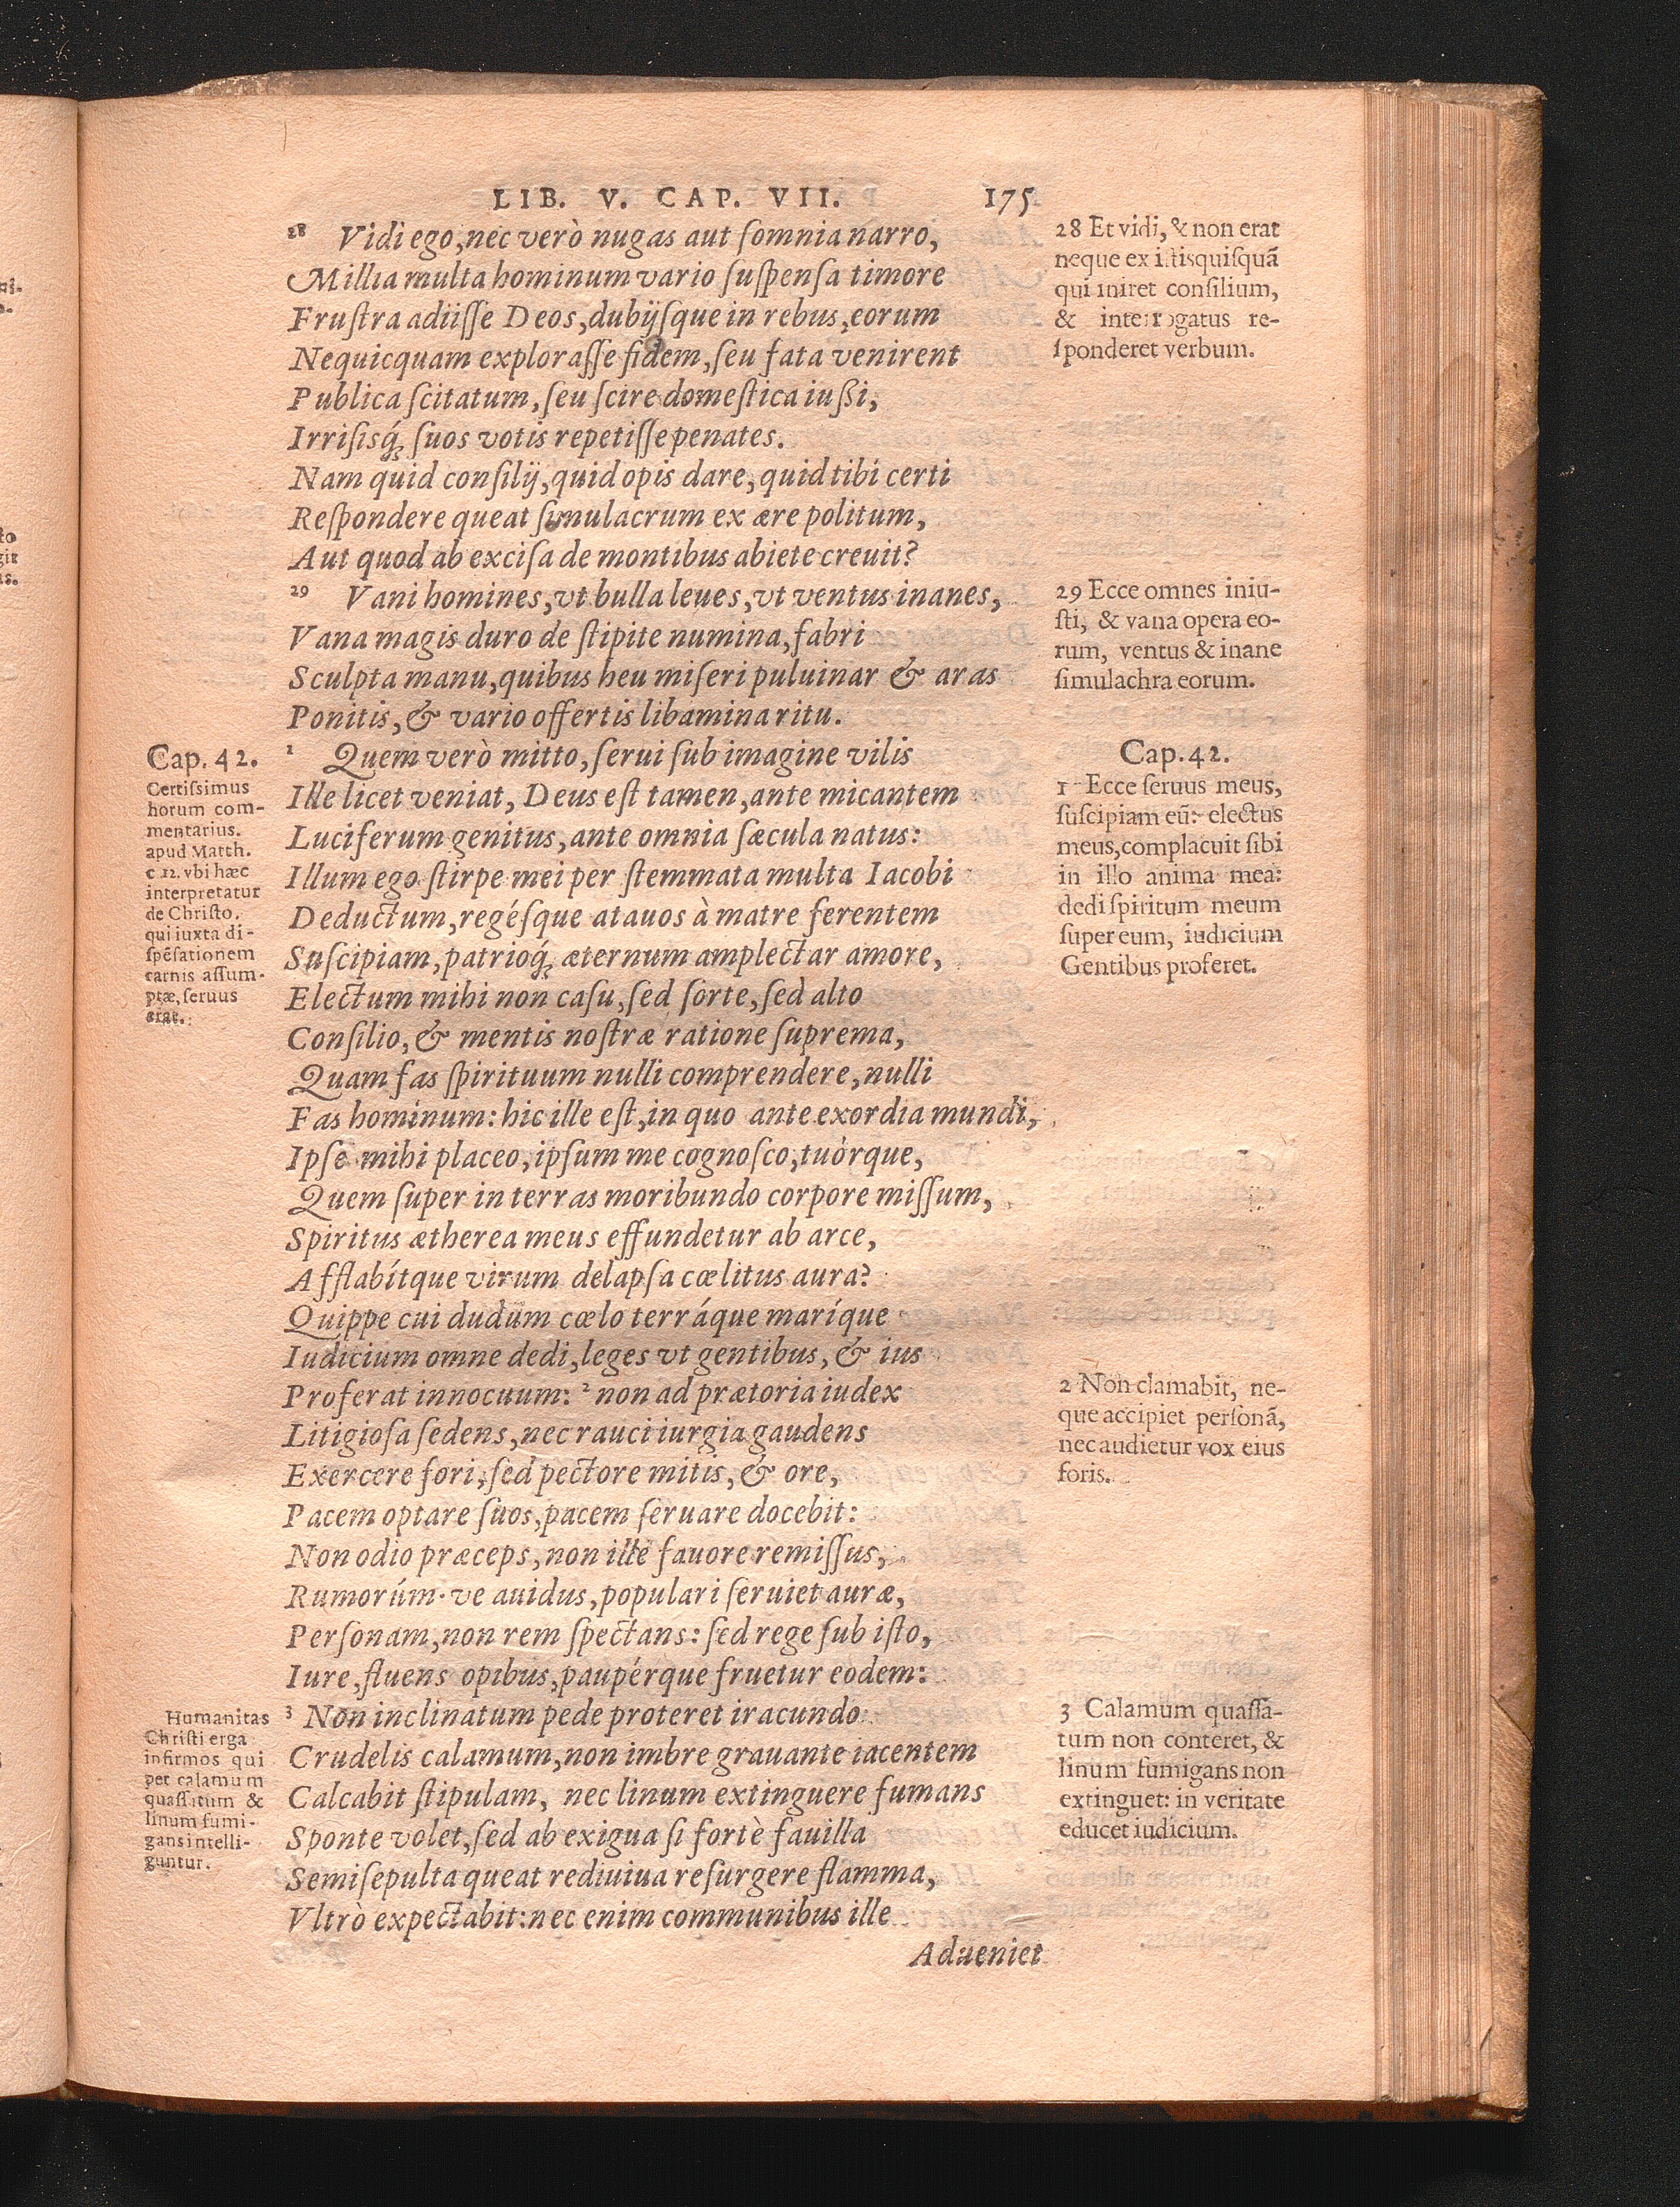 LIB. V. CAP. VII. 175
28 Vidi ego, nec verò nugas aut ſomnia narro,
Millia multa hominum vario ſuſpenſa timore
Fruſtra adiiſſe Deos, dubijſque in rebus, eorum
Nequicquam exploraſſe fidem, ſeu fata venirent
Publica ſcitatum, ſeu ſcire domeſtica iußi,
Irriſisq́; ſuos votis repetiſſe penates.
Nam quid conſilij, quid opis dare, quid tibi certi
Reſpondere queat ſimulacrum ex ære politum,
Aut quod ab exciſa de montibus abiete creuit?
29 Vani homines, vt bulla leues, vt ventus inanes,
Vana magis duro de ſtipite numina, fabri
Sculpta manu, quibus heu miſeri puluinar & aras
Ponitis, & vario offertis libamina ritu.
1 Quem verò mitto, ſerui ſub imagine vilis
Ille licet veniat, Deus eſt tamen, ante micantem
Luciferum genitus, ante omnia ſæcula natus:
Illum ego ſtirpe mei per ſtemmata multa Iacobi
Deductum, regéſque atauos à matre ferentem
Suſcipiam, patrioq́; æternum amplectar amore,
Electum mihi non caſu, ſed ſorte, ſed alto
Conſilio, & mentis noſtræ ratione ſuprema,
Quam fas ſpirituum nulli comprendere, nulli
Fas hominum: hic ille eſt, in quo ante exordia mundi,
Ipſe mihi placeo, ipſum me cognoſco, tuórque,
Quem ſuper in terras moribundo corpore miſſum,
Spiritus ætherea meus effundetur ab arce,
Afflabítque virum delapſa cœlitus aura?
Quippe cui dudum cœlo terráque maríque
Iudicium omne dedi, leges vt gentibus, & ius
Proferat innocuum: 2 non ad prætoria iudex
Litigioſa ſedens, nec rauci iurgia gaudens
Exercere fori, ſed pectore mitis, & ore,
Pacem optare ſuos, pacem ſeruare docebit:
Non odio præceps, non ille fauore remiſſus,
Rumorúm-ve auidus, populari ſeruiet auræ,
Perſonam, non rem ſpectans: ſed rege ſub iſto,
Iure, fluens opibus, paupérque fruetur eodem:
3 Non inclinatum pede proteret iracundo
Crudelis calamum, non imbre grauante iacentem
Calcabit ſtipulam, nec linum extinguere fumans
Sponte volet, ſed ab exigua ſi fortè fauilla
Semiſepulta queat rediuiua reſurgere flamma,
Vltrò expectabit: nec enim communibus ille
Adueniet
Cap. 42.
Certiſsimus
horum com-
mentarius.
apud Matth.
c 12. vbi hæc
interpretatur
de Chriſto.
qui iuxta di-
ſpẽſationem
carnis aſſum-
ptæ, ſeruus
erat.
Humanitas
Chriſti erga
infirmos qui
per calamum
quaſſatum &
linum fumi-
gans intelli-
guntur.
28 Et vidi, & non erat
neque ex iſtis quiſquã
qui iniret conſilium,
& interrogatus re-
ſponderet verbum.
29 Ecce omnes iniu-
ſti, & vana opera eo-
rum, ventus & inane
ſimulachra eorum.
Cap. 42.
1 Ecce ſeruus meus,
ſuſcipiam eũ: electus
meus, complacuit ſibi
in illo anima mea:
dedi ſpiritum meum
ſuper eum, iudicium
Gentibus proferet.
2 Non clamabit, ne-
que accipiet perſonã,
nec audietur vox eius
foris.
3 Calamum quaſſa-
tum non conteret, &
linum fumigans non
extinguet: in veritate
educet iudicium.